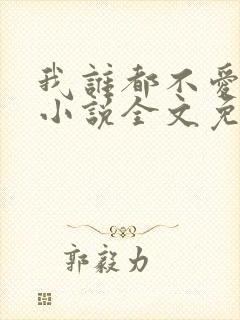 我誰都不愛
小說全文免
郭毅力